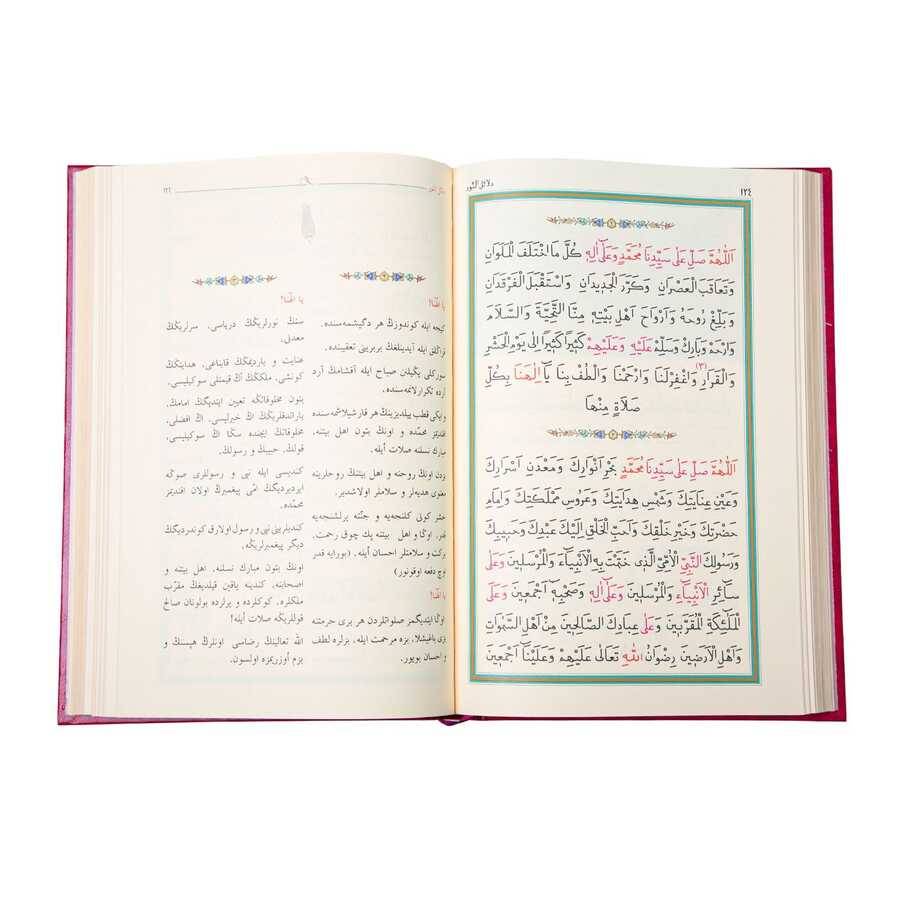 ١٢٤
دلائل النور
اَللّٰهُمَّ صَلِّ عَلٰى سَيِّدِنَا مُحَمَّدٍ وَعَلٰٓى اٰلِهٖ كُلَّ مَا اخْتَلَفَ الْمَلَوَانِ
وَتَعَاقَبَ الْعَصْرَانِ وَكَرَّرَ الْجَدِيدَانِ وَاسْتَقْبَلَ الْفَرْقَدَانِ
وَبَلِّغْ رُوحَهُ وَاَرْوَاحَ اَهْلِ بَيْتِهٖ مِنَّا التَّحِيَّةَ وَالسَّلَامَ
وَارْحَمْ وَبَارِكْ وَسَلِّمْ عَلَيْهِ وَعَلَيْهِمْ كَثِيرًا كَثِيرًا اِلٰى يَوْمِ الْحَشْرِ
وَالْقَرَارِ (٣) وَاغْفِرْلَنَا وَارْحَمْنَا وَالْطُفْ بِنَا يَٓا اِلٰهَنَا بِكُلِّ
صَلَاةٍ مِنْهَا
اَللّٰهُمَّ صَلِّ عَلٰى سَيِّدِنَا مُحَمَّدٍ بَحْرِ اَنْوَارِكَ وَمَعْدَنِ اَسْرَارِكَ
وَعَيْنِ عِنَايَتِكَ وَشَمْسِ هِدَايَتِكَ وَعَرُوسِ مَمْلَكَتِكَ وَاِمَامِ
حَضْرَتِكَ وَخَيْرِ خَلْقِكَ وَاَحَبِّ الْخَلْقِ اِلَيْكَ عَبْدِكَ وَحَبِيبِكَ
وَرَسُولِكَ النَّبِيِّ الْاُمِّيِّ الَّذِي خَتَمْتَ بِهِ الْاَنْبِيَٓاءَ وَالْمُرْسَلِينَ وَعَلٰى
سَٓائِرِ الْاَنْبِيَٓاءِ وَالْمُرْسَلِينَ وَعَلٰٓى اٰلِهٖ وَصَحْبِهٖٓ اَجْمَعِينَ وَعَلٰى
الْمَلٰٓئِكَةِ الْمُقَرَّبِينَ وَعَلٰى عِبَادِكَ الصَّالِحِينَ مِنْ اَهْلِ السَّمٰوَاتِ
وَاَهْلِ الْاَرَضِينَ رِضْوَانُ اللّٰهِ تَعَالٰى عَلَيْهِمْ وَعَلَيْنَٓا اَجْمَعِينَ
يا الٰهنا!
كيجه ايله كوندوزڭ هر دگيشمه‌سنده،
قراڭلق ايله آيدينلغڭ بربرينى تعقيبنده،
صباح ايله آقشامڭ آرد
آرده تكرارلانمه‌سنده،
قطب ييلديزينڭ هر قارشيلاشمه‌سنده
محمّده و اونڭ بتون اهل بيتنه،
مبارك نسلنه صلات أيله.
اونڭ روحنه و اهل بيتنڭ روحلرينه
معنوى هديه‌لر و سلاملر اولاشدير.
حشر كونى
اوڭا و اهل بيتنه پك چوق رحمت،
بركت و سلامتلر احسان أيله. (بورايه قدر
اوچ دفعه اوقونور)
يا الٰهنا!
صلواتلردن هر برى حرمتنه
بزى باغيشلا، بزه مرحمت أيله، بزلره لطف
و احسان بويور.
يا الٰهنا!
سنڭ نورلريڭڭ درياسى، سرلريڭڭ
معدنى،
عنايت و يارديمڭڭ قايناغى، هدايتڭڭ
كونشى، ملكڭڭ اڭ قيمتلى سوكيليسى،
بتون مخلوقاتڭه تعيين ايتديگڭ امامڭ،
ياراتدقلريڭڭ اڭ خيرليسى، اڭ افضلى،
مخلوقاتڭ ايچنده سڭا اڭ سوكيليسى،
قولڭ، حبيبڭ و رسولڭ،
كنديسى ايله نبى و رسوللرى صوڭه
ايرديرديگڭ امّى پيغمبرڭ اولان افنديمز
محمّده،
كنديلرينى نبى و رسول اولارق كوندرديگڭ
ديگر پيغمبرلريڭه،
اونڭ بتون مبارك نسلنه، اهل بيتنه و
اصحابنه، كندينه ياقين قيلديغڭ مقرّب
ملكلره، كوكلرده و يرلرده بولونان صالح
قوللريڭه صلات أيله!
الله تعالينڭ رضاسى اونلرڭ هپسنڭ و
بزم اوزريمزه اولسون.